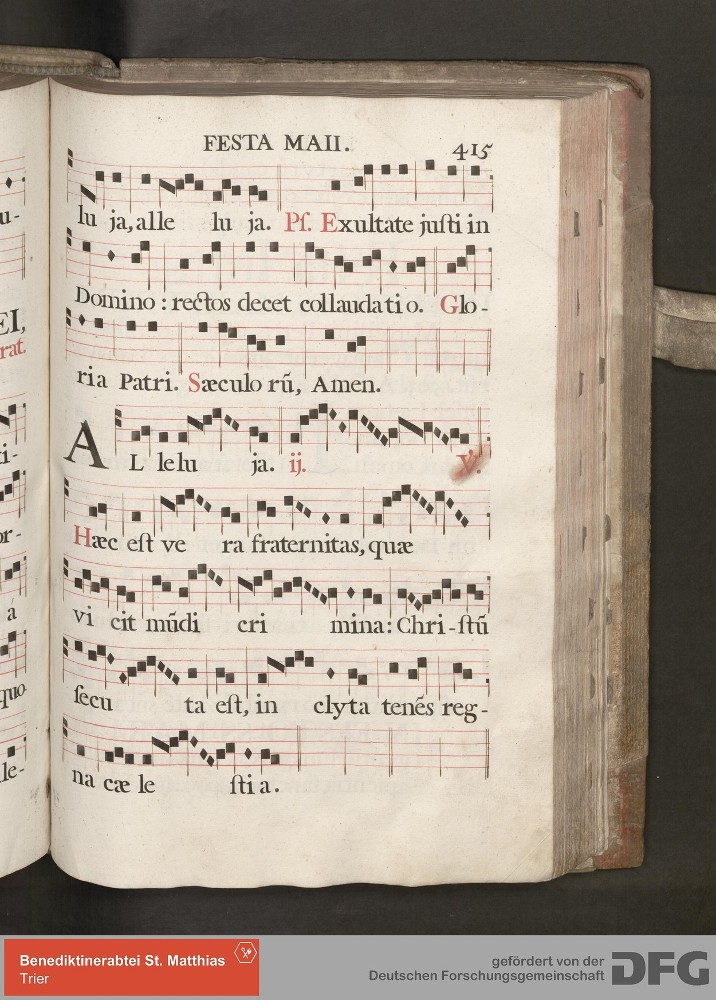 FESTA MAII. 415
lu ja, alle lu ja. Pſ. Exultate juſti in
Domino : rectos decet collauda ti o. Glo-
ria Patri. Sæculo rũ, Amen.
AL lelu ja. ij. ℣.
Hæc eſt ve ra fraternitas, quæ
vi cit mũdi cri mina: Chri-ſtũ
ſecu ta eſt, in clyta tenẽs reg-
na cæ le ſti a.
u-
EI,
rat.
ti-
or-
a
quo
le-
Benediktinerabtei St. Matthias
Trier
gefördert von der
Deutschen Forschungsgemeinschaft DFG